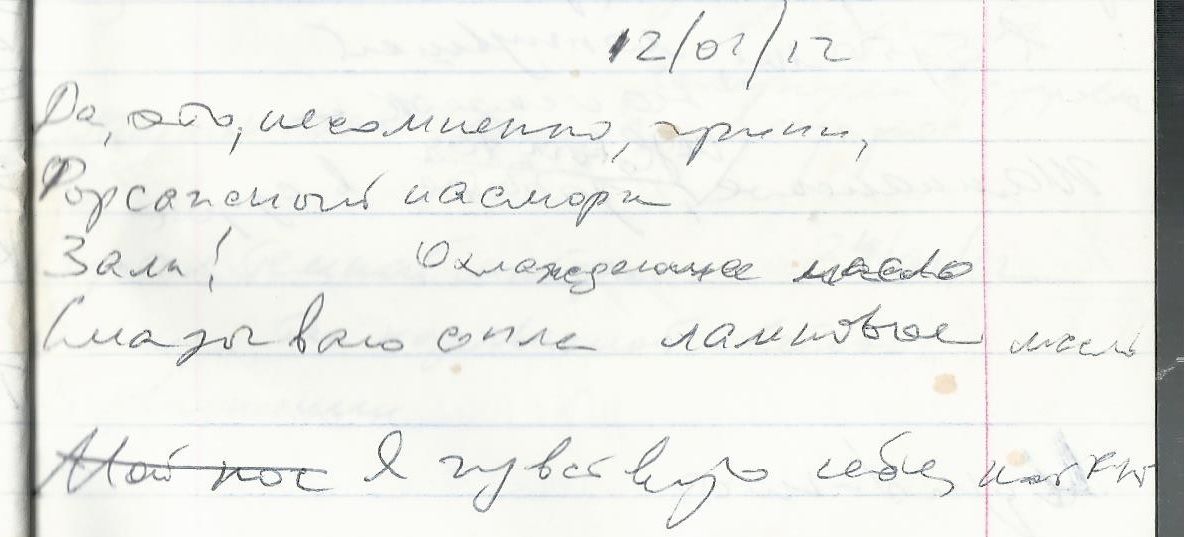 12/01/12
Да, это, несомненно, грипп,
Форсажный насморк
Залп! Охлаждающее масло
Смазываю сопла ламповое масло
Мой нос Я чувствую себя, как